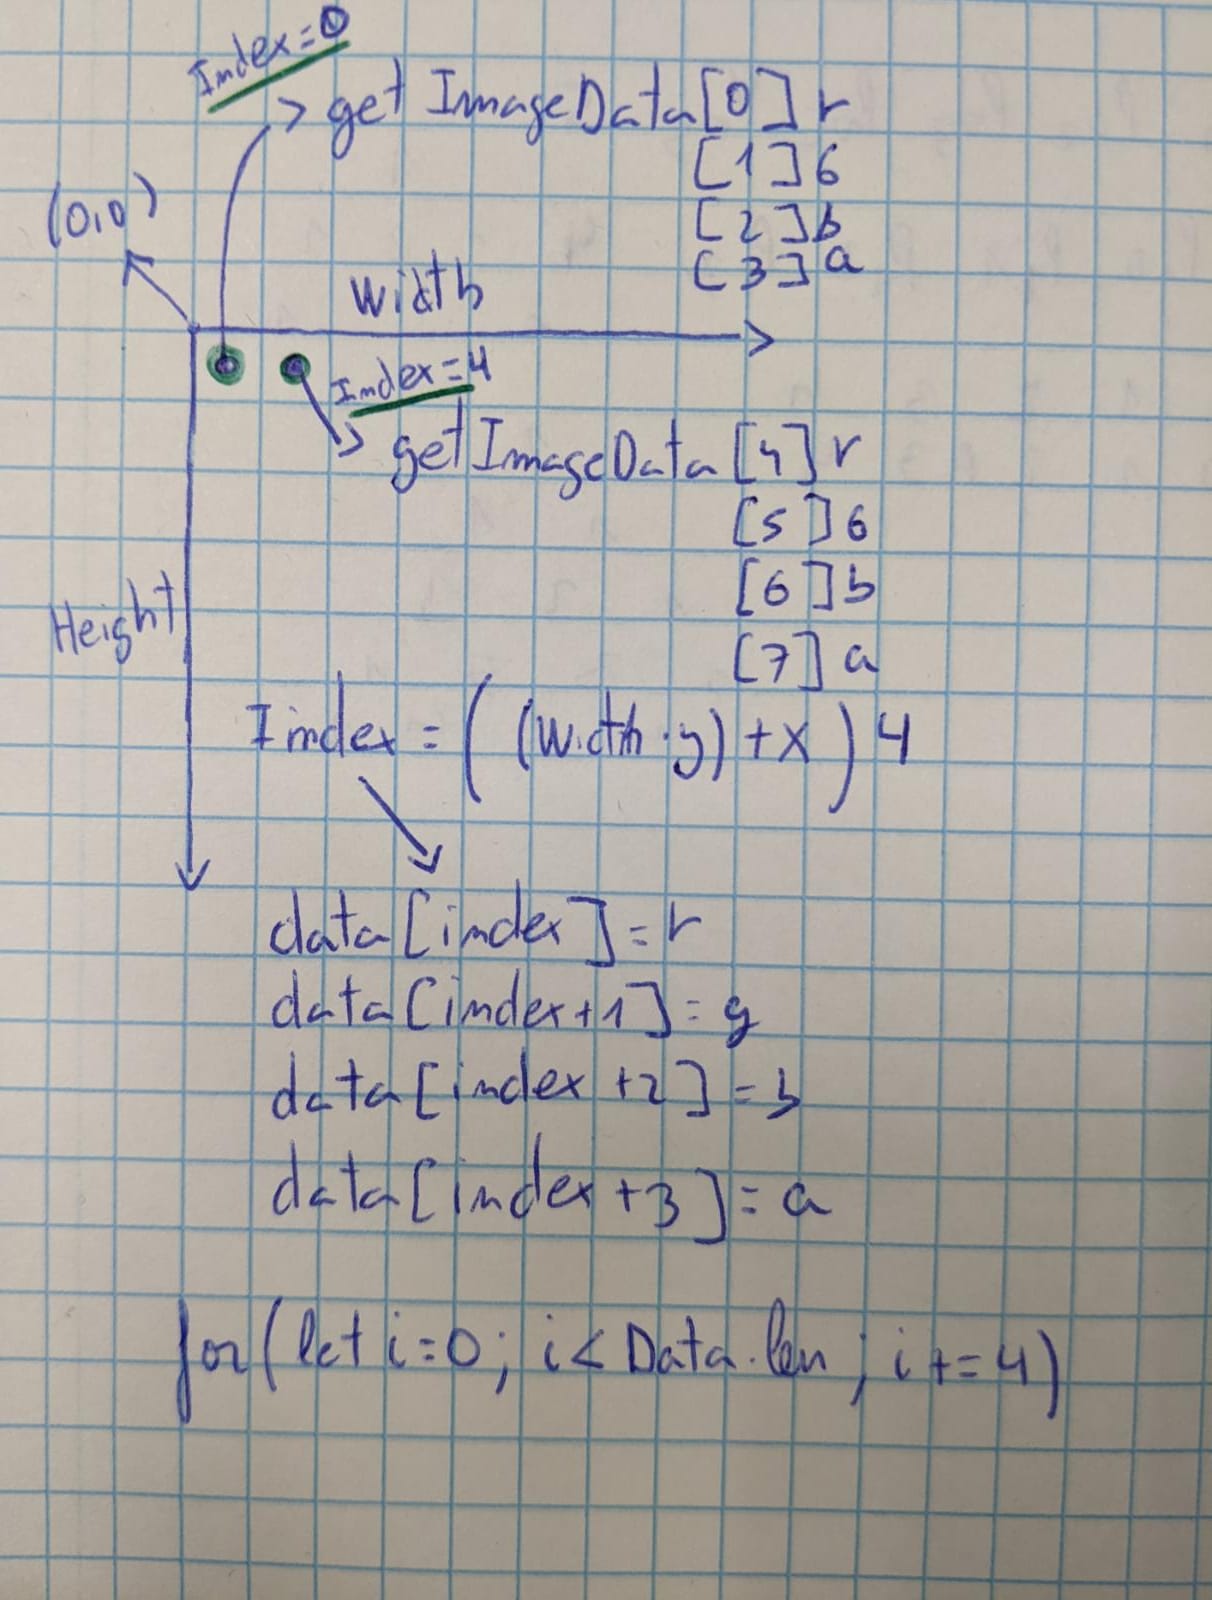 Index=0
get ImageData[0] r
[1] G
[2] b
[3] a
(0,0)
Width
Index=4
getImageData [4] r
[5] G
[6] b
[7] a
Height
Index = ((Width·y) + x) 4
data[index] = r
data[index+1] = g
data[index+2] = b
data[index+3] = a
for(let i=0; i< Data.len; i+=4)